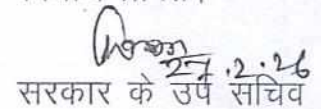 27.2.26
सरकार के उप सचिव